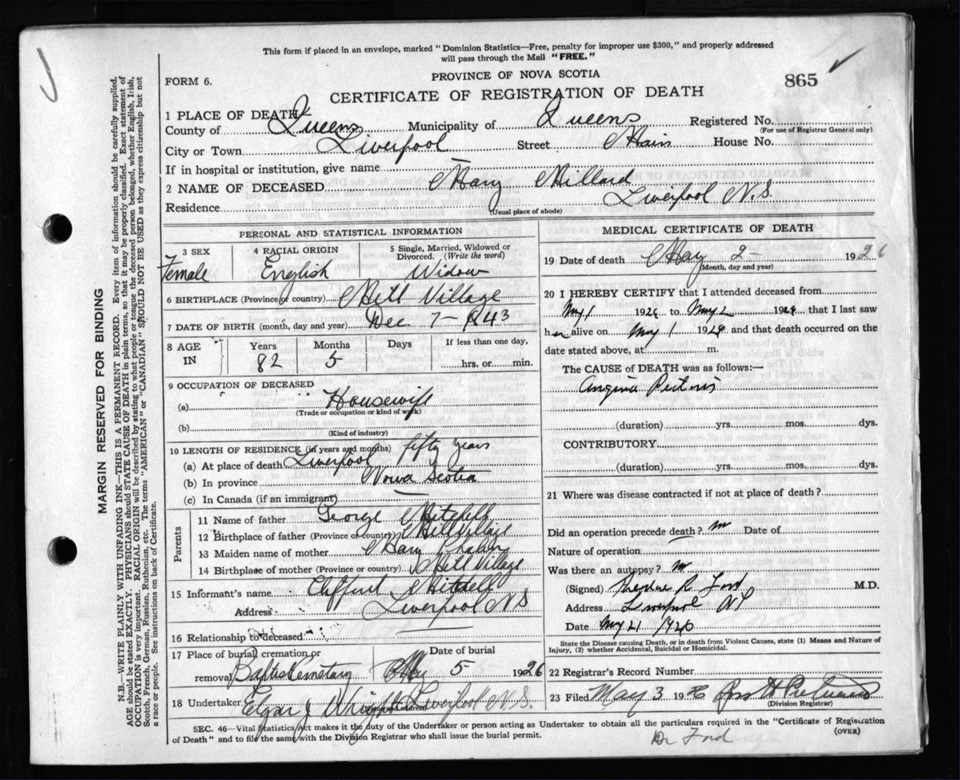 This form if placed in an envelope, marked "Dominion Statistics—Free, penalty for improper use $300," and properly addressed
will pass through the Mail "FREE."
PROVINCE OF NOVA SCOTIA
FORM 6.
865
CERTIFICATE OF REGISTRATION OF DEATH
1 PLACE OF DEATH
County of Queens Municipality of Queens Registered No.
(For use of Registrar General only)
City or Town Liverpool Street Main House No.
If in hospital or institution, give name —
2 NAME OF DECEASED Mary Millard
Residence Liverpool N.S.
(Usual place of abode)
PERSONAL AND STATISTICAL INFORMATION
3 SEX 4 RACIAL ORIGIN 5 Single, Married, Widowed or Divorced. (Write the word)
Female English Widow
6 BIRTHPLACE (Province or country) Mill Village
7 DATE OF BIRTH (month, day and year) Dec 7 - 1843
8 AGE IN Years Months Days If less than one day,
82 5 hrs. or min.
9 OCCUPATION OF DECEASED
(a) Housewife
(Trade or occupation or kind of work)
(b)
(Kind of industry)
10 LENGTH OF RESIDENCE (in years and months)
(a) At place of death Liverpool fifty years
(b) In province Nova Scotia
(c) In Canada (if an immigrant) —
Parents
11 Name of father George Mitchell
12 Birthplace of father (Province or country) Mill Village
13 Maiden name of mother Mary
14 Birthplace of mother (Province or country) Mill Village
15 Informant's name Clifford Mitchell
Address Liverpool N S
16 Relationship to deceased
17 Place of burial cremation or removal Date of burial
Baptist Cemetary May 5 1926
18 Undertaker Edgar J Wright Liverpool N.S.
MEDICAL CERTIFICATE OF DEATH
19 Date of death May 2 - 1926
(Month, day and year)
20 I HEREBY CERTIFY that I attended deceased from
May 1 1926 to May 2 1926 that I last saw
her alive on May 1 1926 and that death occurred on the
date stated above, at m.
The CAUSE of DEATH was as follows:—
Angina Pectoris
(duration) yrs. mos. dys.
CONTRIBUTORY
(duration) yrs. mos. dys.
21 Where was disease contracted if not at place of death?
Did an operation precede death? no Date of
Nature of operation
Was there an autopsy? no
(Signed) Theodore R. Ford M.D.
Address Liverpool NS
Date May 21 1926
State the Disease causing Death, or in death from Violent Causes, state (1) Means and Nature of
Injury, (2) whether Accidental, Suicidal or Homicidal.
22 Registrar's Record Number
23 Filed May 3 1926
(Division Registrar)
SEC. 46—Vital Statistics Act makes it the duty of the Undertaker or person acting as Undertaker to obtain all the particulars required in the "Certificate of Registration
of Death" and to file the same with the Division Registrar who shall issue the burial permit.
(OVER)
Dr Ford
MARGIN RESERVED FOR BINDING
N.B.—WRITE PLAINLY WITH UNFADING INK—THIS IS A PERMANENT RECORD. Every item of information should be carefully supplied.
AGE should be stated EXACTLY. PHYSICIANS should STATE CAUSE OF DEATH in plain terms, so that it may be properly classified. Exact statement of
OCCUPATION is very important. RACIAL ORIGIN will be described by stating to what people or tongue the deceased person belonged, whether English, Irish,
Scotch, French, German, Russian, Ruthenian, etc. The terms "AMERICAN" or "CANADIAN" SHOULD NOT BE USED as they express citizenship but not
a race or people. See instructions on back of Certificate.